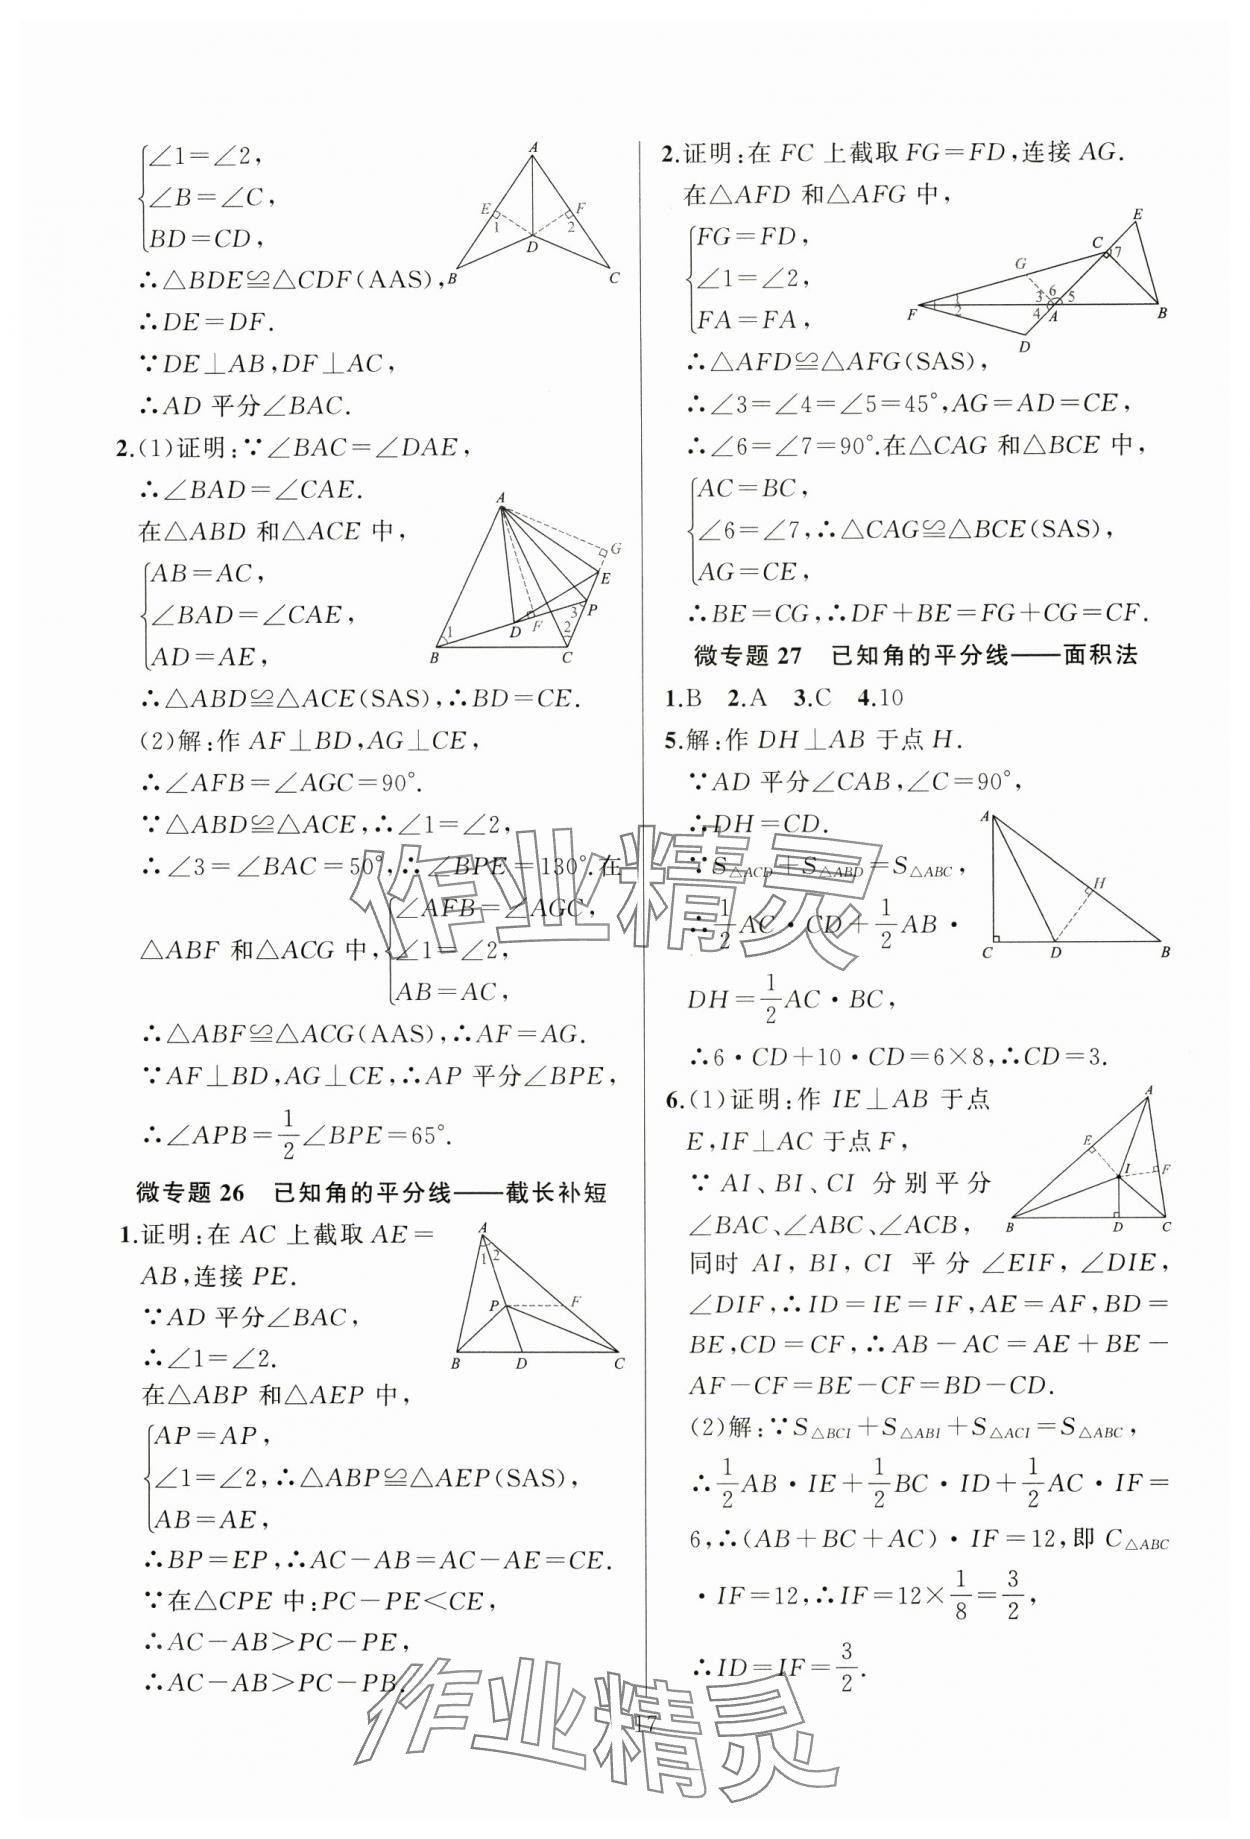 ∠1=∠2,
∠B=∠C,
BD=CD,
∴△BDE≌△CDF(AAS),
∴DE=DF.
∵DE⊥AB,DF⊥AC,
∴AD 平分∠BAC.
A
E
F
1
2
D
B
C
2.(1)证明:∵∠BAC=∠DAE,
∴∠BAD=∠CAE.
在△ABD 和△ACE 中,
AB=AC,
∠BAD=∠CAE,
AD=AE,
∴△ABD≌△ACE(SAS),∴BD=CE.
A
G
E
P
3
F
D
1
2
B
C
(2)解:作 AF⊥BD,AG⊥CE,
∴∠AFB=∠AGC=90°.
∵△ABD≌△ACE,∴∠1=∠2,
∴∠3=∠BAC=50°,∴∠BPE=130°.在
∠AFB=∠AGC,
△ABF 和△ACG 中,∠1=∠2,
AB=AC,
∴△ABF≌△ACG(AAS),∴AF=AG.
∵AF⊥BD,AG⊥CE,∴AP 平分∠BPE,
∴∠APB=1/2∠BPE=65°.
微专题 26 已知角的平分线——截长补短
1.证明:在 AC 上截取 AE=
AB,连接 PE.
∵AD 平分∠BAC,
∴∠1=∠2.
在△ABP 和△AEP 中,
A
1 2
P
F
B
D
C
AP=AP,
∠1=∠2,∴△ABP≌△AEP(SAS),
AB=AE,
∴BP=EP,∴AC-AB=AC-AE=CE.
∵在△CPE 中:PC-PE<CE,
∴AC-AB>PC-PE,
∴AC-AB>PC-PB.
2.证明:在 FC 上截取 FG=FD,连接 AG.
在△AFD 和△AFG 中,
FG=FD,
∠1=∠2,
FA=FA,
E
C
7
G
1
2
3
6
5
4
F
A
B
D
∴△AFD≌△AFG(SAS),
∴∠3=∠4=∠5=45°,AG=AD=CE,
∴∠6=∠7=90°.在△CAG 和△BCE 中,
AC=BC,
∠6=∠7,∴△CAG≌△BCE(SAS),
AG=CE,
∴BE=CG,∴DF+BE=FG+CG=CF.
微专题 27 已知角的平分线——面积法
1.B 2.A 3.C 4.10
5.解:作 DH⊥AB 于点 H.
∵AD 平分∠CAB,∠C=90°,
∴DH=CD.
∵S△ACD+S△ABD=S△ABC,
∴1/2AC·CD+1/2AB·
DH=1/2AC·BC,
∴6·CD+10·CD=6×8,∴CD=3.
A
H
C
D
B
6.(1)证明:作 IE⊥AB 于点
E,IF⊥AC 于点 F,
∵ AI、BI、CI 分别平分
∠BAC、∠ABC、∠ACB,
A
E
I
F
B
D
C
同时 AI, BI, CI 平分 ∠EIF, ∠DIE,
∠DIF,∴ID=IE=IF,AE=AF,BD=
BE,CD=CF,∴AB-AC=AE+BE-
AF-CF=BE-CF=BD-CD.
(2)解:∵S△BCI+S△ABI+S△ACI=S△ABC,
∴1/2AB·IE+1/2BC·ID+1/2AC·IF=
6,∴(AB+BC+AC)·IF=12,即 C△ABC
·IF=12,∴IF=12×1/8=3/2,
∴ID=IF=3/2.
17
作业精灵
作业精灵